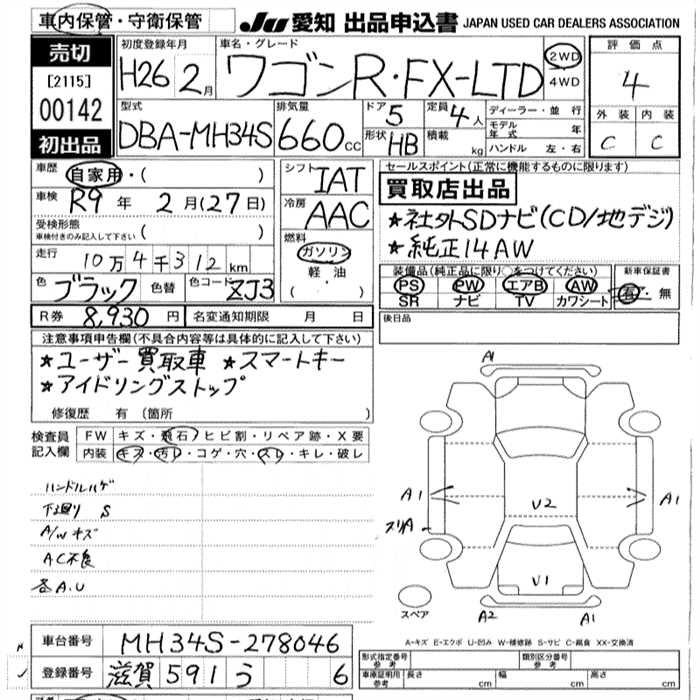 車内保管・守衛保管
JU 愛知 出品申込書 JAPAN USED CAR DEALERS ASSOCIATION
売切
[2115]
00142
初出品
初度登録年月
H26 2月
車名・グレード
ワゴンR・FX-LTD
2WD
4WD
評価点
4
外装 内装
C C
型式
DBA-MH34S
排気量
660cc
ドア 5
形状 HB
定員 4人
積載 kg
ディーラー・並行
モデル年式 年
ハンドル 左・右
車歴 自家用・( )
車検 R9年 2月(27日)
受検形態
車検付きのみ記入して下さい ( )
走行 10万4千312km
色 ブラック 色替 色コード ZJ3
シフト IAT
冷房 AAC
燃料
ガソリン
軽油
( ・ )
セールスポイント(正常に機能するものに限ります)
買取店出品
★社外SDナビ(CD/地デジ)
★純正14AW
装備品(純正品に限り○をつけてください)
PS PW エアB AW
SR ナビ TV カワシート
新車保証書
有・無
R券 8,930円 名変通知期限 月 日
後日品
注意事項申告欄(不具合内容等は具体的に記入して下さい)
★ユーザー買取車 ★スマートキー
★アイドリングストップ
修復歴 有(箇所 )
検査員記入欄
FW キズ・飛石・ヒビ割・リペア跡・X要
内装 キズ・汚レ・コゲ・穴・スレ・キレ・破レ
ハンドルハゲ
下廻り S
A/Wキズ
AC不良
各A.U
A1
A1
A1
スリA
V2
V1
A2
A1
スペア
A-キズ E-エクボ U-凹み W-補修跡 S-サビ C-腐食 XX-交換済
車台番号 MH34S-278046
登録番号 滋賀 591 う 6
形式指定番号 参考
類別区分番号 参考
車庫証明用 参考 長さ cm 幅 cm 高さ cm